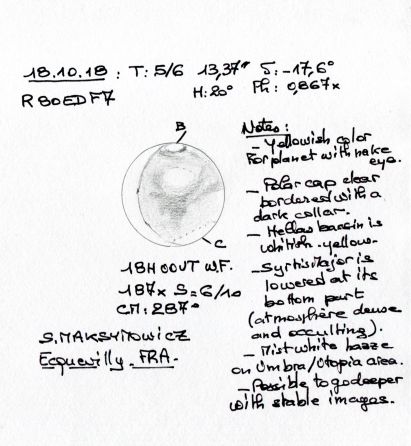 18.10.18 : T: 5/6 13,37" δ: -17,6°
R80EDF7 H: 20° Ph: 0,867x
B
C
18H00UT W.F.
187x S=6/10
CM: 287°
S. MAKSYMOWICZ
Ecquevilly. FRA.
Notes :
- Yellowish color
for planet with nake
eye.
- Polar cap clear
bordered with a
dark collar.
- Hellas bassin is
whitish-yellow.
- Syrtis Major is
lowered at its
bottom part
(atmosphère dense
and occulting).
- Mist white haze
on Umbra/Utopia area.
- Possible to go deeper
with stable images.